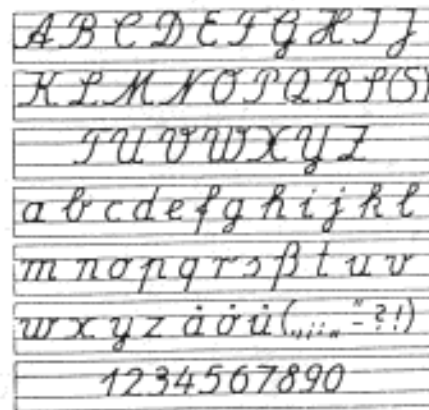 A B C D E F G H I J
K L M N O P Q R S (S)
T U V W X Y Z
a b c d e f g h i j k l
m n o p q r s ß t u v
w x y z ä ö ü ( „ , ; : „ " – ? ! )
1 2 3 4 5 6 7 8 9 0